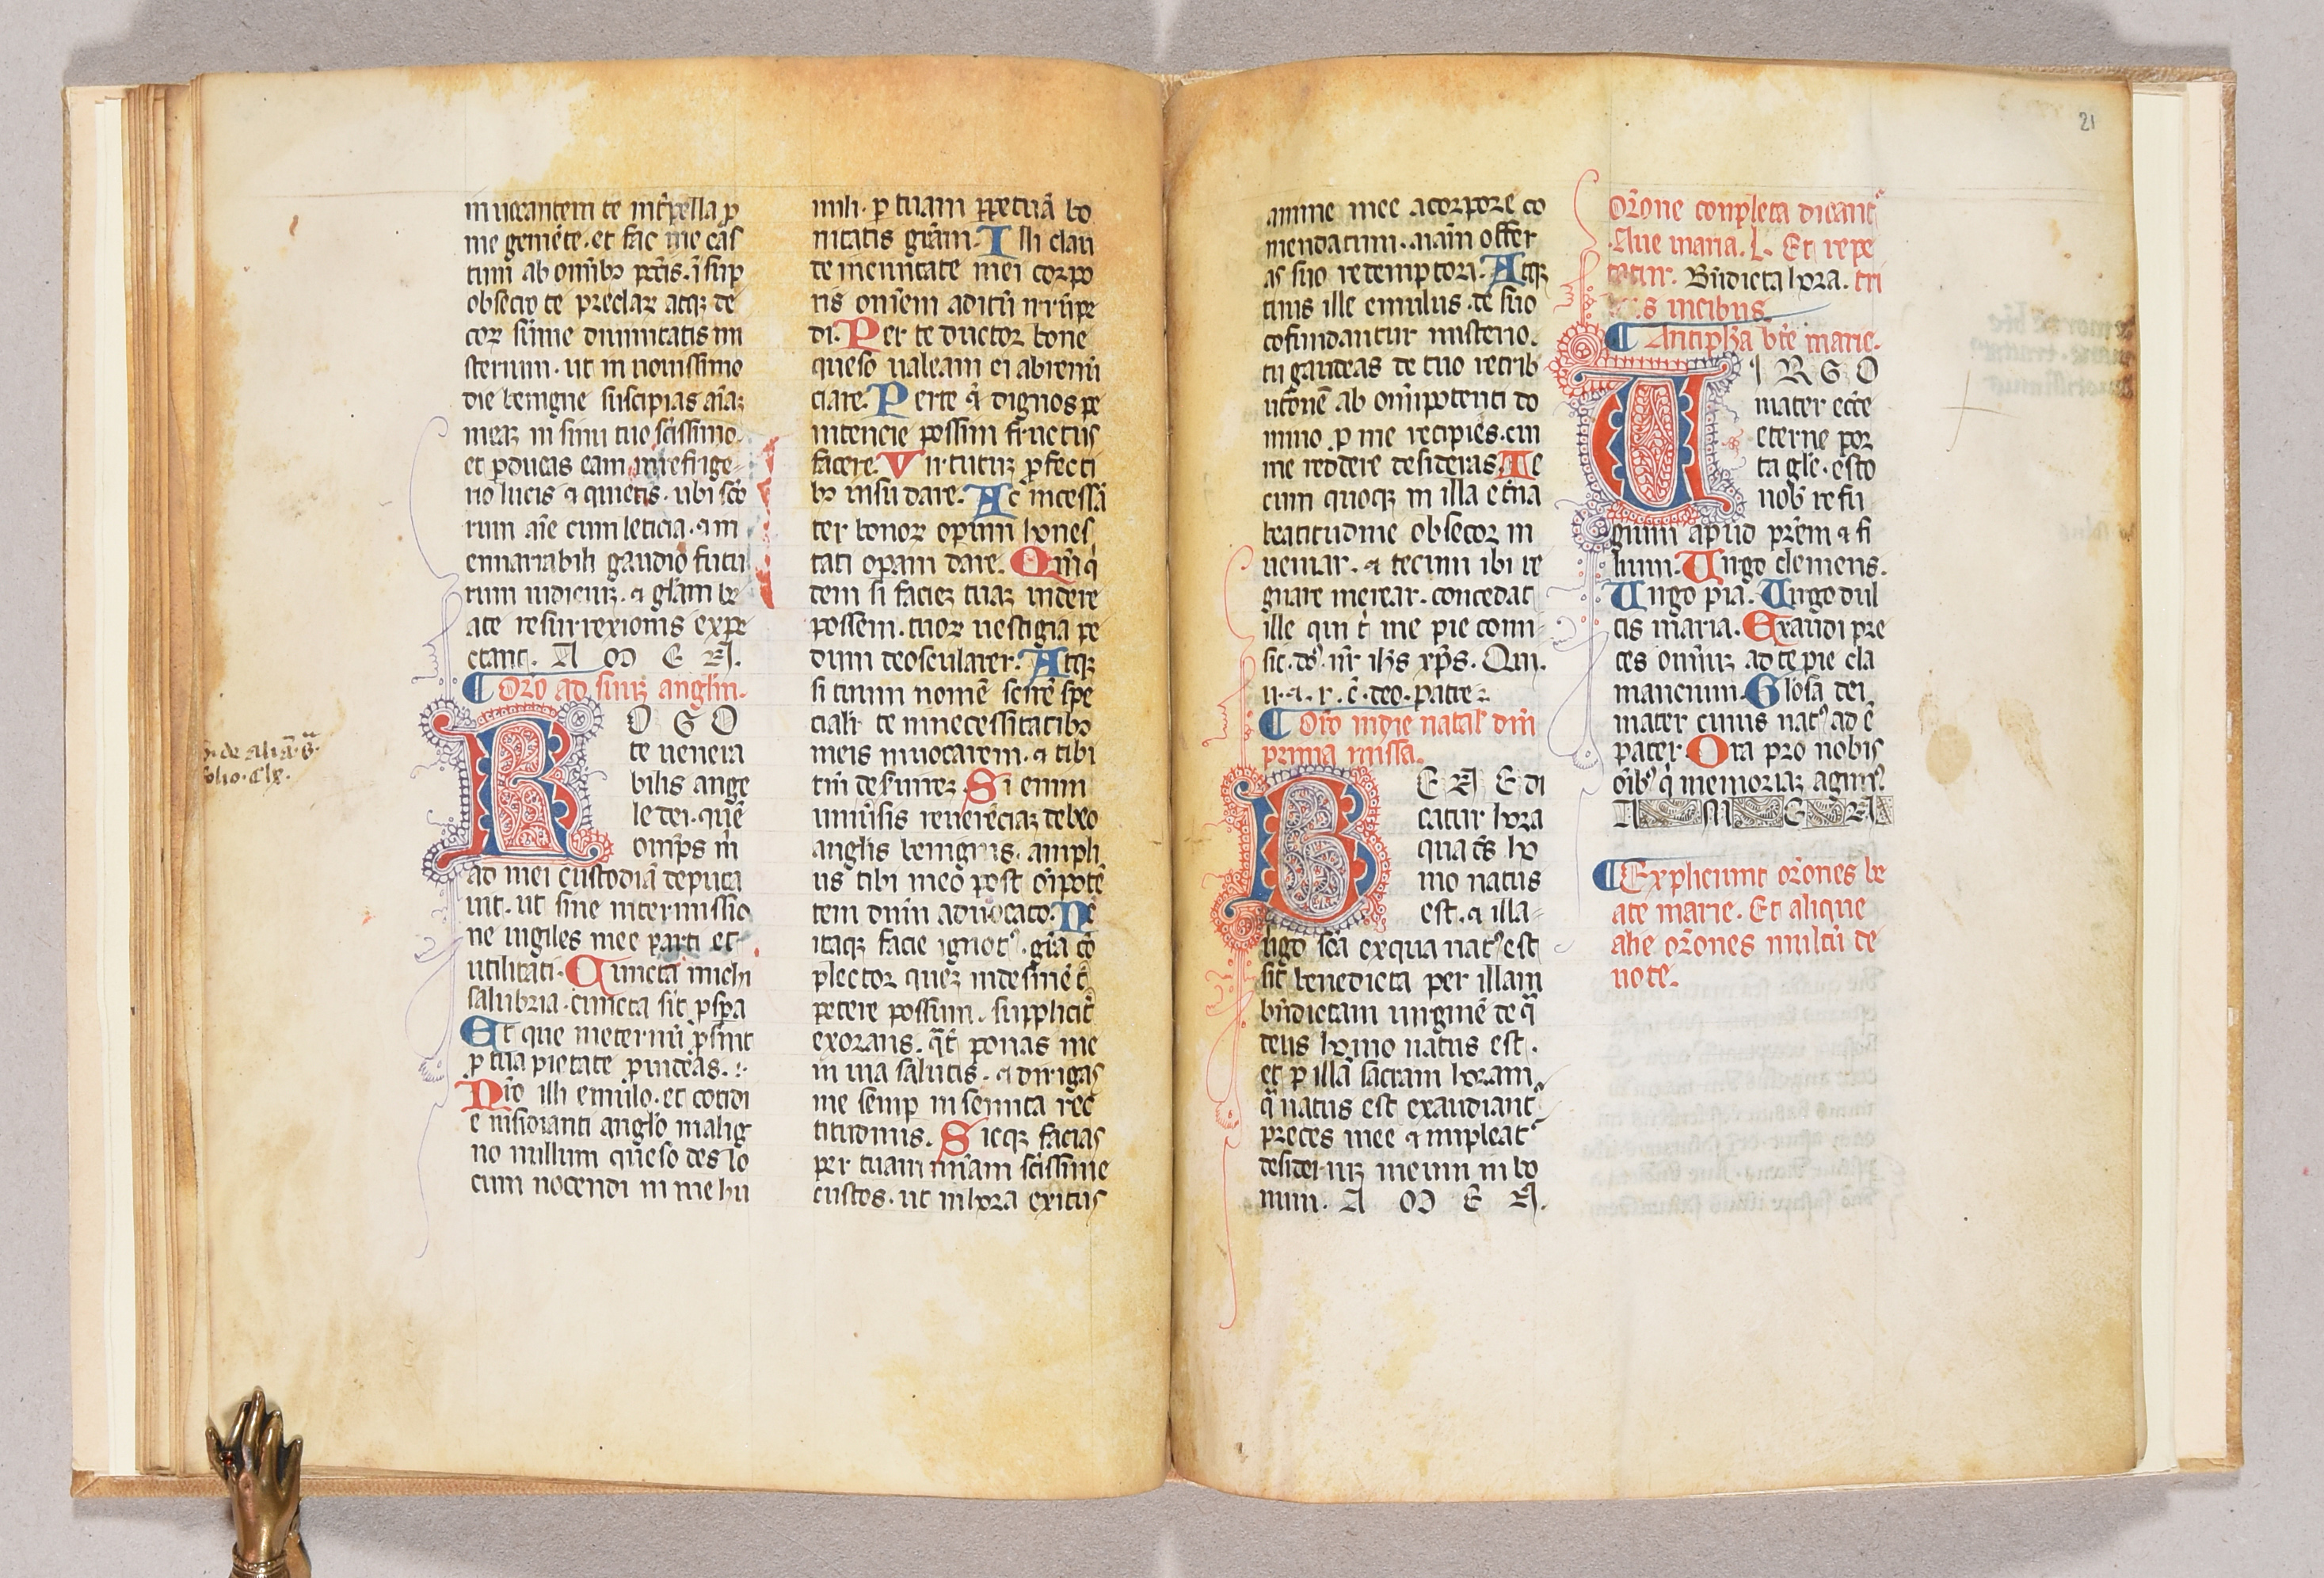 inuocantem te int̃pella ꝓ
me gemẽte. et fac me cas
tum ab omĩbꝫ pctĩs. ĩ sup
obsecro te preclaꝝ atqꝫ de
coꝝ sũme diuinitatis mi
sterium. ut in nouissimo
die benigne suscipias aĩaꝫ
meaꝫ in sinu tuo sc̃issimo.
et ꝑducas eam in refrige-
rio lucis ⁊ quietis. ubi sc̃o
rum aĩe cum leticia. ⁊ in
ennarrabili gaudio futu
rum iudiciuꝫ. ⁊ gl̃am be
ate resurrexionis expe
ctant. A M E N.
¶ Or̃o ad suuꝫ angl̃m.
R O G O
te uenera
bilis ange
le dei. quẽ
omĩps in
ad mei custodiã deputa
uit. ut sine intermissio
ne uigiles mee parti et
utilitati. Cuncta michi
salubria. cuncta sit ꝓspa
Et que meternũ ꝓsint
ꝑ tua pietate ꝓuideas. :.
Nõ illi emulo. et cotidi
e insidianti angl̃o malig
no nullum queso des lo
cum nocendi in me hu
mili. ꝑ tuam ꝑpetuã bo
nitatis gr̃am. Illi clau
de incuntate mei corpo
ris omẽm aditũ irrũpe
di. Per te ductor bone
queso ualeam ei abrenũ
ciare. Per te q̃ dignos pe
nitencie possim fructus
facere. Virtutuꝫ ꝑfecti
bꝫ insudare. Ac incessã
ter bonoꝝ opum hones
tati opam dare. Qñiq̃
dem si facieꝫ tuaꝫ uidere
possem. tuoꝝ uestigia pe
dum deoscularer. Atqꝫ
si tuum nomẽ scirẽ spe
ciali te in necessitatibꝫ
meis inuocarem. ⁊ tibi
tm̃ desinireꝫ. Si enim
uniũsis reuerẽciaꝫ debeo
anglis benignus. ampli
us tibi meo post oĩpotẽ
tem dñm aduocato. Nẽ
itaqꝫ facie ignotꝰ. gr̃a cõ
plector queꝫ indesinẽt̃
petere possum. supplicit̃
exorans. q̃t̃ ponas me
in uia salutis. ⁊ dirigas
me semp in semita rec
titudinis. Sicqꝫ facias
per tuam mĩam sc̃issime
custos. ut in hora exitus
anime mee a corpore co
mendatum. aiam offer
as suo redemptori. Atqꝫ
tuus ille emulus. de suo
cofundantur misterio.
tu gaudeas de tuo retrib
utionẽ ab omĩpotenti do
mino ꝑ me recipies. cui
me reddere desideras. Te
cum quoqꝫ in illa et̃na
beatitudine obsecor in
ueniar. ⁊ tecum ibi re
gnare merear. concedat
ille qui t̃ me pie comi-
sit. dꝰ. nr̃ ih̃s xp̃s. Qui.
u. ⁊. r. c̃. deo. patre.
¶ Or̃o in die natal' dñi
prima missa.
B E N E di
catur hora
qua dꝰ ho
mo natus
est. ⁊ illa-
uirgo sc̃a ex qua natꝰ est
sit benedicta per illam
bñdictam uirginẽ de q̃
deus homo natus est.
et ꝑ illã sacram horam
q̃ natus est exaudiantꝰ
preces mee ⁊ impleatꝰ
desideriuꝫ meum in bo
num. A M E N.
Or̃one completa dicantꝰ
Aue maria. L. Et repe
tatur. Bñdicta hora. tri
bus uicibus.
¶ Antiph̃a bt̃e marie.
U I R G O
mater ecc̃e
eterne por
ta gl̃e. esto
nob̃ refu
gium apud pr̃em ⁊ fi
lium. Uirgo clemens.
Uirgo pia. Uirgo dul
cis maria. Exaudi pre
ces omĩuꝫ ad te pie cla
mancium. Glosa dei
mater cuius natꝰ ad ẽ
pater. Ora pro nobis
oĩbꝰ q̃ memoriaꝫ agimꝰ
A M E N
¶ Expliciunt or̃ones be
ate marie. Et alique
alie or̃ones multũ de
uote.
21
de aliã
folio. Clx.